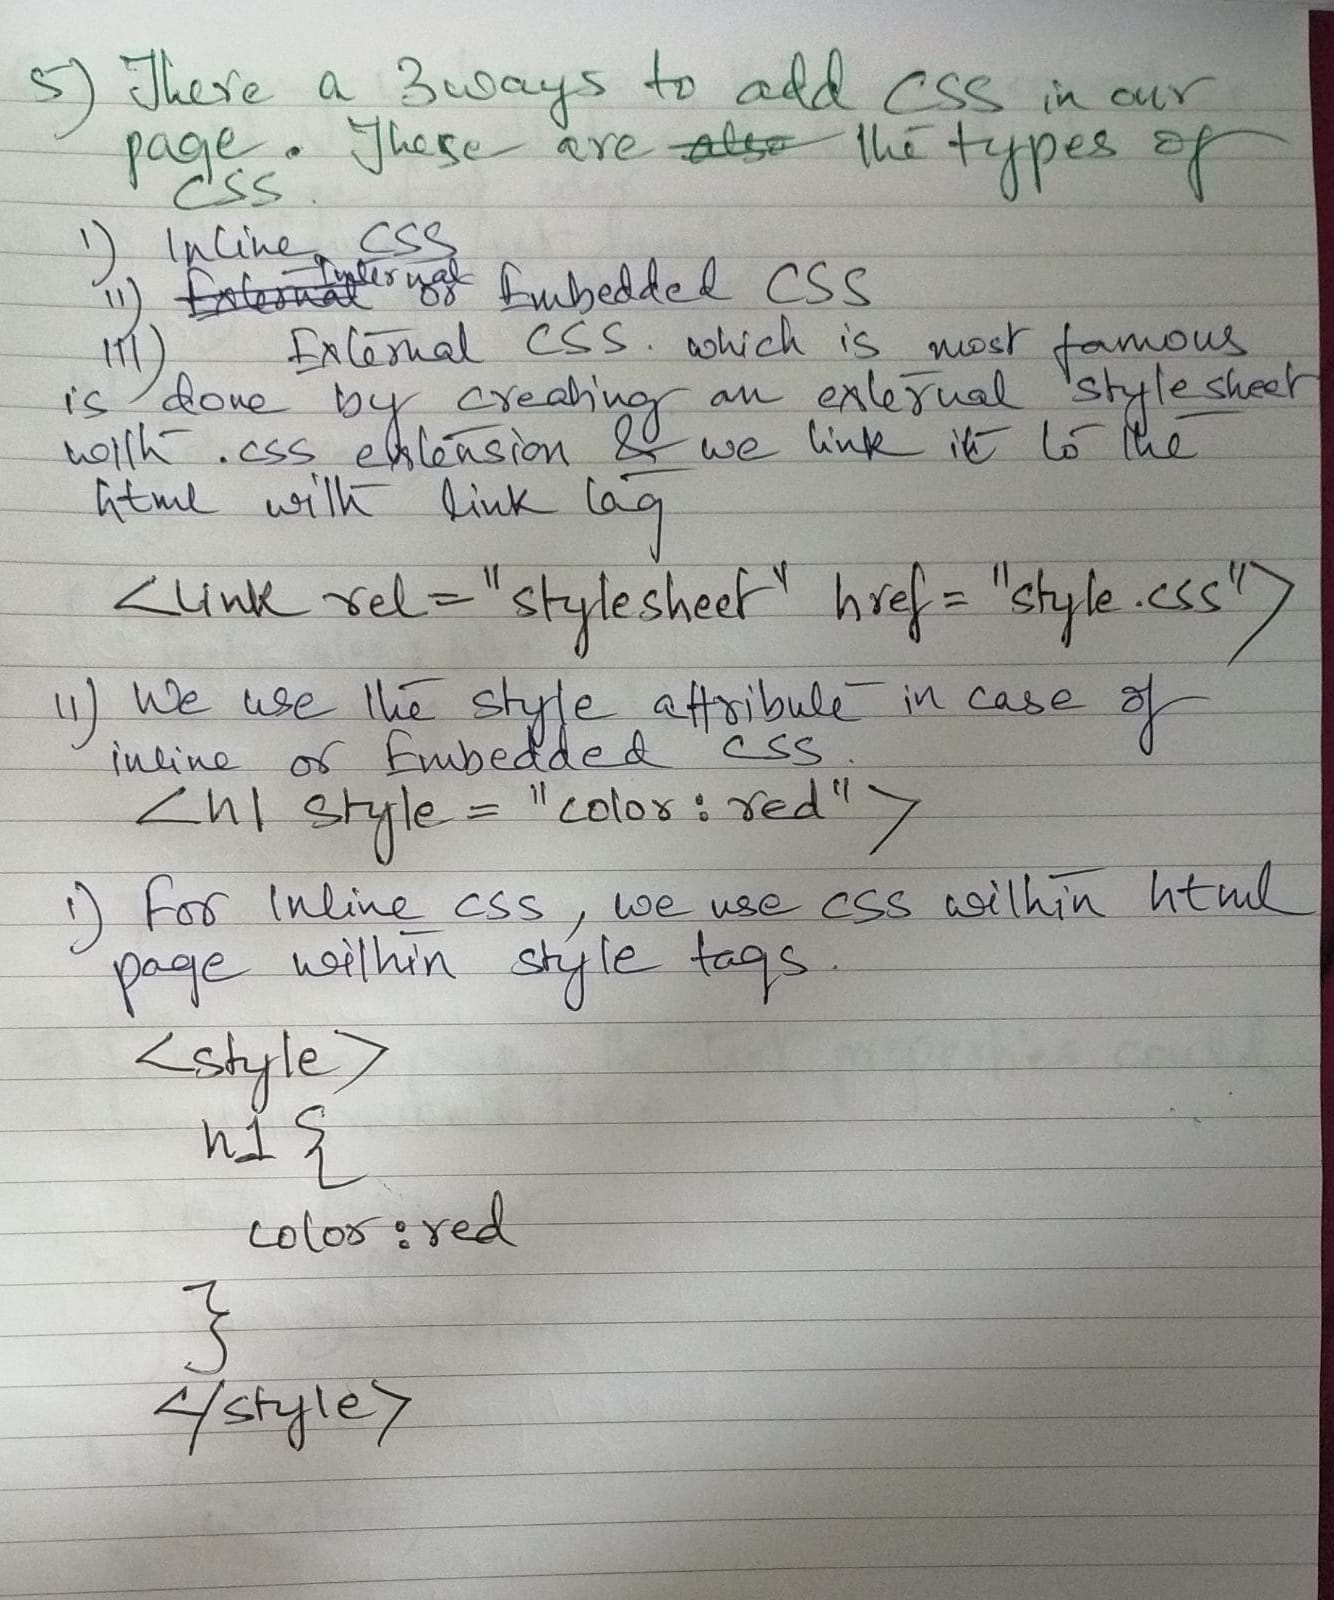 5) There a 3 ways to add CSS in our
page. These are also the types of
CSS.
i) Inline CSS
ii) External Internal or Embedded CSS
iii) External CSS. which is most famous
is done by creating an external stylesheet
with .css extension & we link it to the
html with link tag
<link rel="stylesheet" href="style.css">
ii) We use the style attribute in case of
inline or Embedded CSS.
<h1 style="color:red">
i) For Inline CSS, we use CSS within html
page within style tags.
<style>
h1 {
color:red
}
</style>